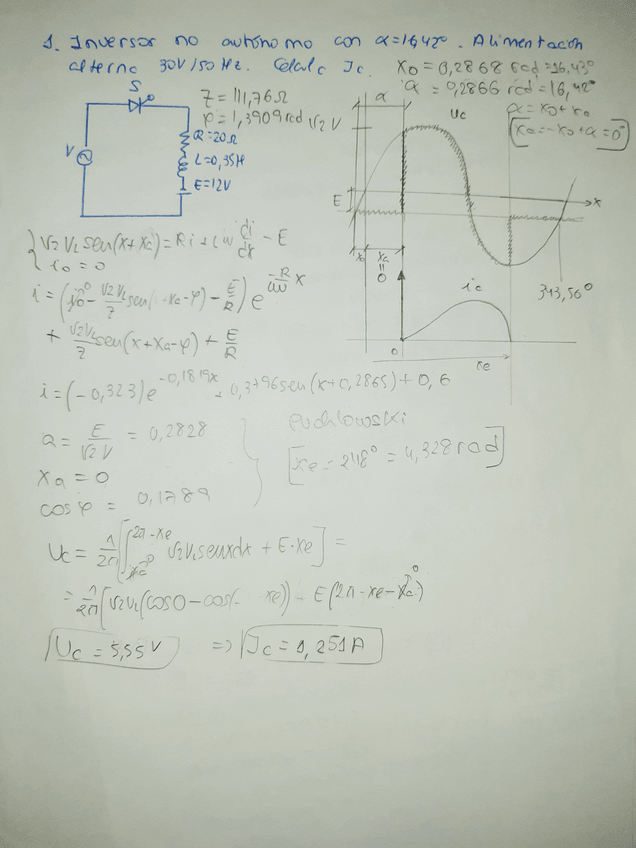 1. Inversor no autónomo con α=16,42°. Alimentación
alterna 30V/50Hz. Calcula Ic.
x0 = 0,2868 rad = 16,43°
α = 0,2866 rad = 16,42°
α = x0 + xa
[xa = -x0 + α = 0°]
S
Z = 111,76Ω
φ = 1,3909 rad
R=20Ω
L=0,35H
E=12V
V
α
Uc
√2 V
E
x
x0
xa
=
0
ic
313,56°
0
xe
√2 VL sen(x+xa) = Ri + Lω di/dx - E
i0 = 0
i = (i0 - √2VL/Z sen(xa-φ) - E/R) e^(-R/Lω x)
+ √2VL/Z sen(x+xa-φ) + E/R
i = (-0,323)e^(-0,1819x) + 0,3796 sen(x+0,2865) + 0,6
a = E/√2V = 0,2828
xa = 0
cos φ = 0,1789
Puchlowski
[xe = 248° = 4,328 rad]
Uc = 1/2π [∫ 2π-xe √2VL senx dx + E·xe] =
= 1/2π [√2VL(cos0-cos( xe)) - E(2π-xe-xa)
Uc = 5,55V ⇒ Ic = 1,251A